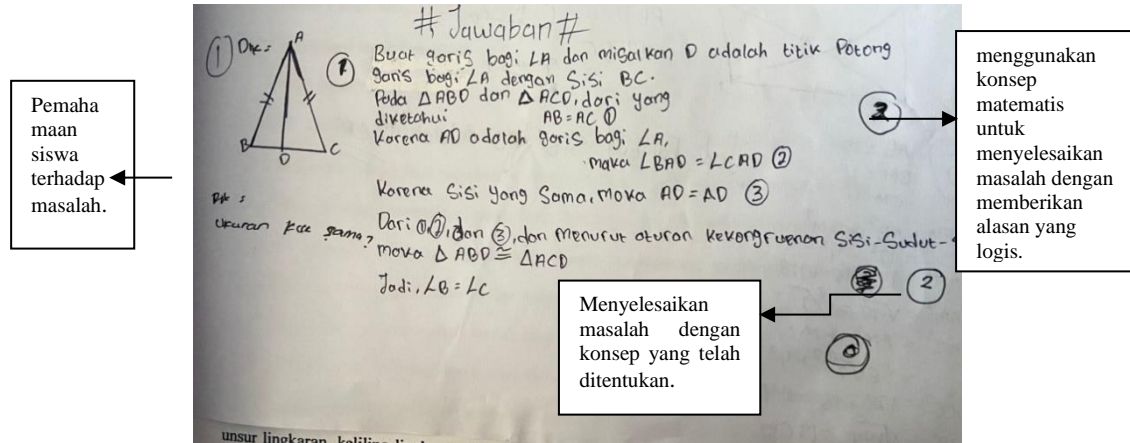 # Jawaban #
1
Dik =
A
B
D
C
1
Buat garis bagi ∠A dan misalkan D adalah titik Potong
garis bagi ∠A dengan Sisi BC.
Pada △ABD dan △ACD, dari yang
diketahui AB = AC ①
Karena AD adalah garis bagi ∠A,
maka ∠BAD = ∠CAD ②
Karena Sisi yang Sama, maka AD = AD ③
:
ukuran sama?
Dari ①, ②, dan ③, dan Menurut aturan kekongruenan Sisi-Sudut-
maka △ABD ≅ △ACD
Jadi, ∠B = ∠C
2
Pemaha
maan
siswa
terhadap
masalah.
menggunakan
konsep
matematis
untuk
menyelesaikan
masalah dengan
memberikan
alasan yang
logis.
Menyelesaikan
masalah dengan
konsep yang telah
ditentukan.
unsur lingkaran, keliling